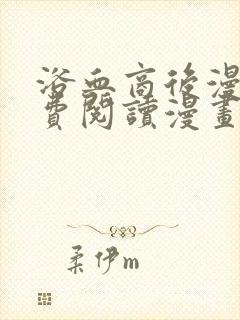 浴血商後漫
費閱讀漫畫
柔伊m